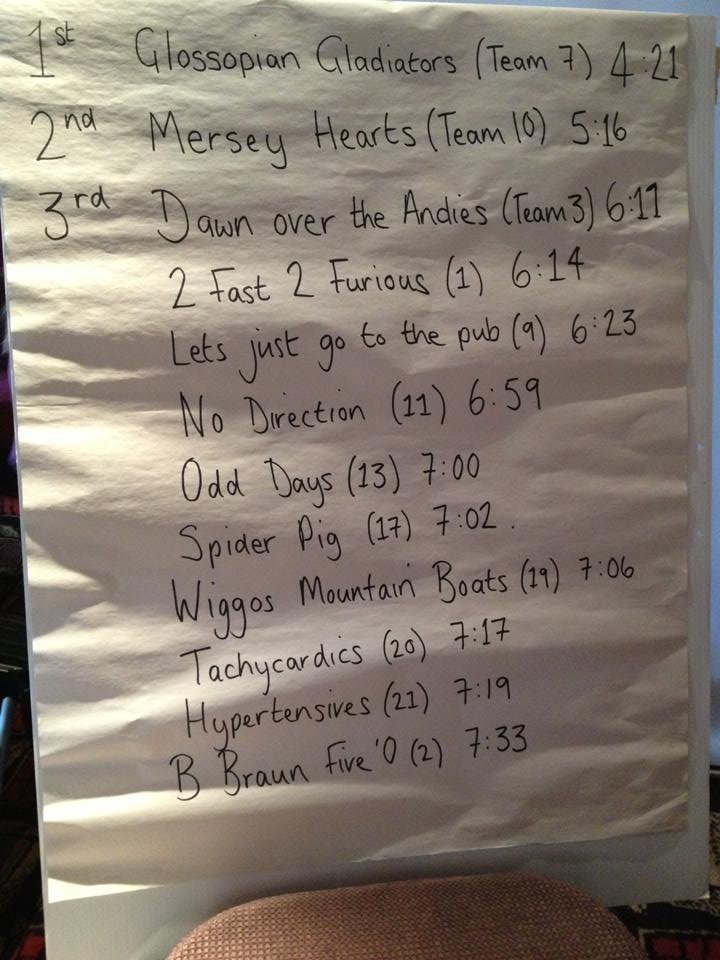 1st Glossopian Gladiators (Team 7) 4:21
2nd Mersey Hearts (Team 10) 5:16
3rd Dawn over the Andies (Team 3) 6:11
2 Fast 2 Furious (1) 6:14
Lets just go to the pub (9) 6:23
No Direction (11) 6:59
Odd Days (13) 7:00
Spider Pig (17) 7:02.
Wiggos Mountain Boats (19) 7:06
Tachycardics (20) 7:17
Hypertensives (21) 7:19
B Braun Five'O (2) 7:33